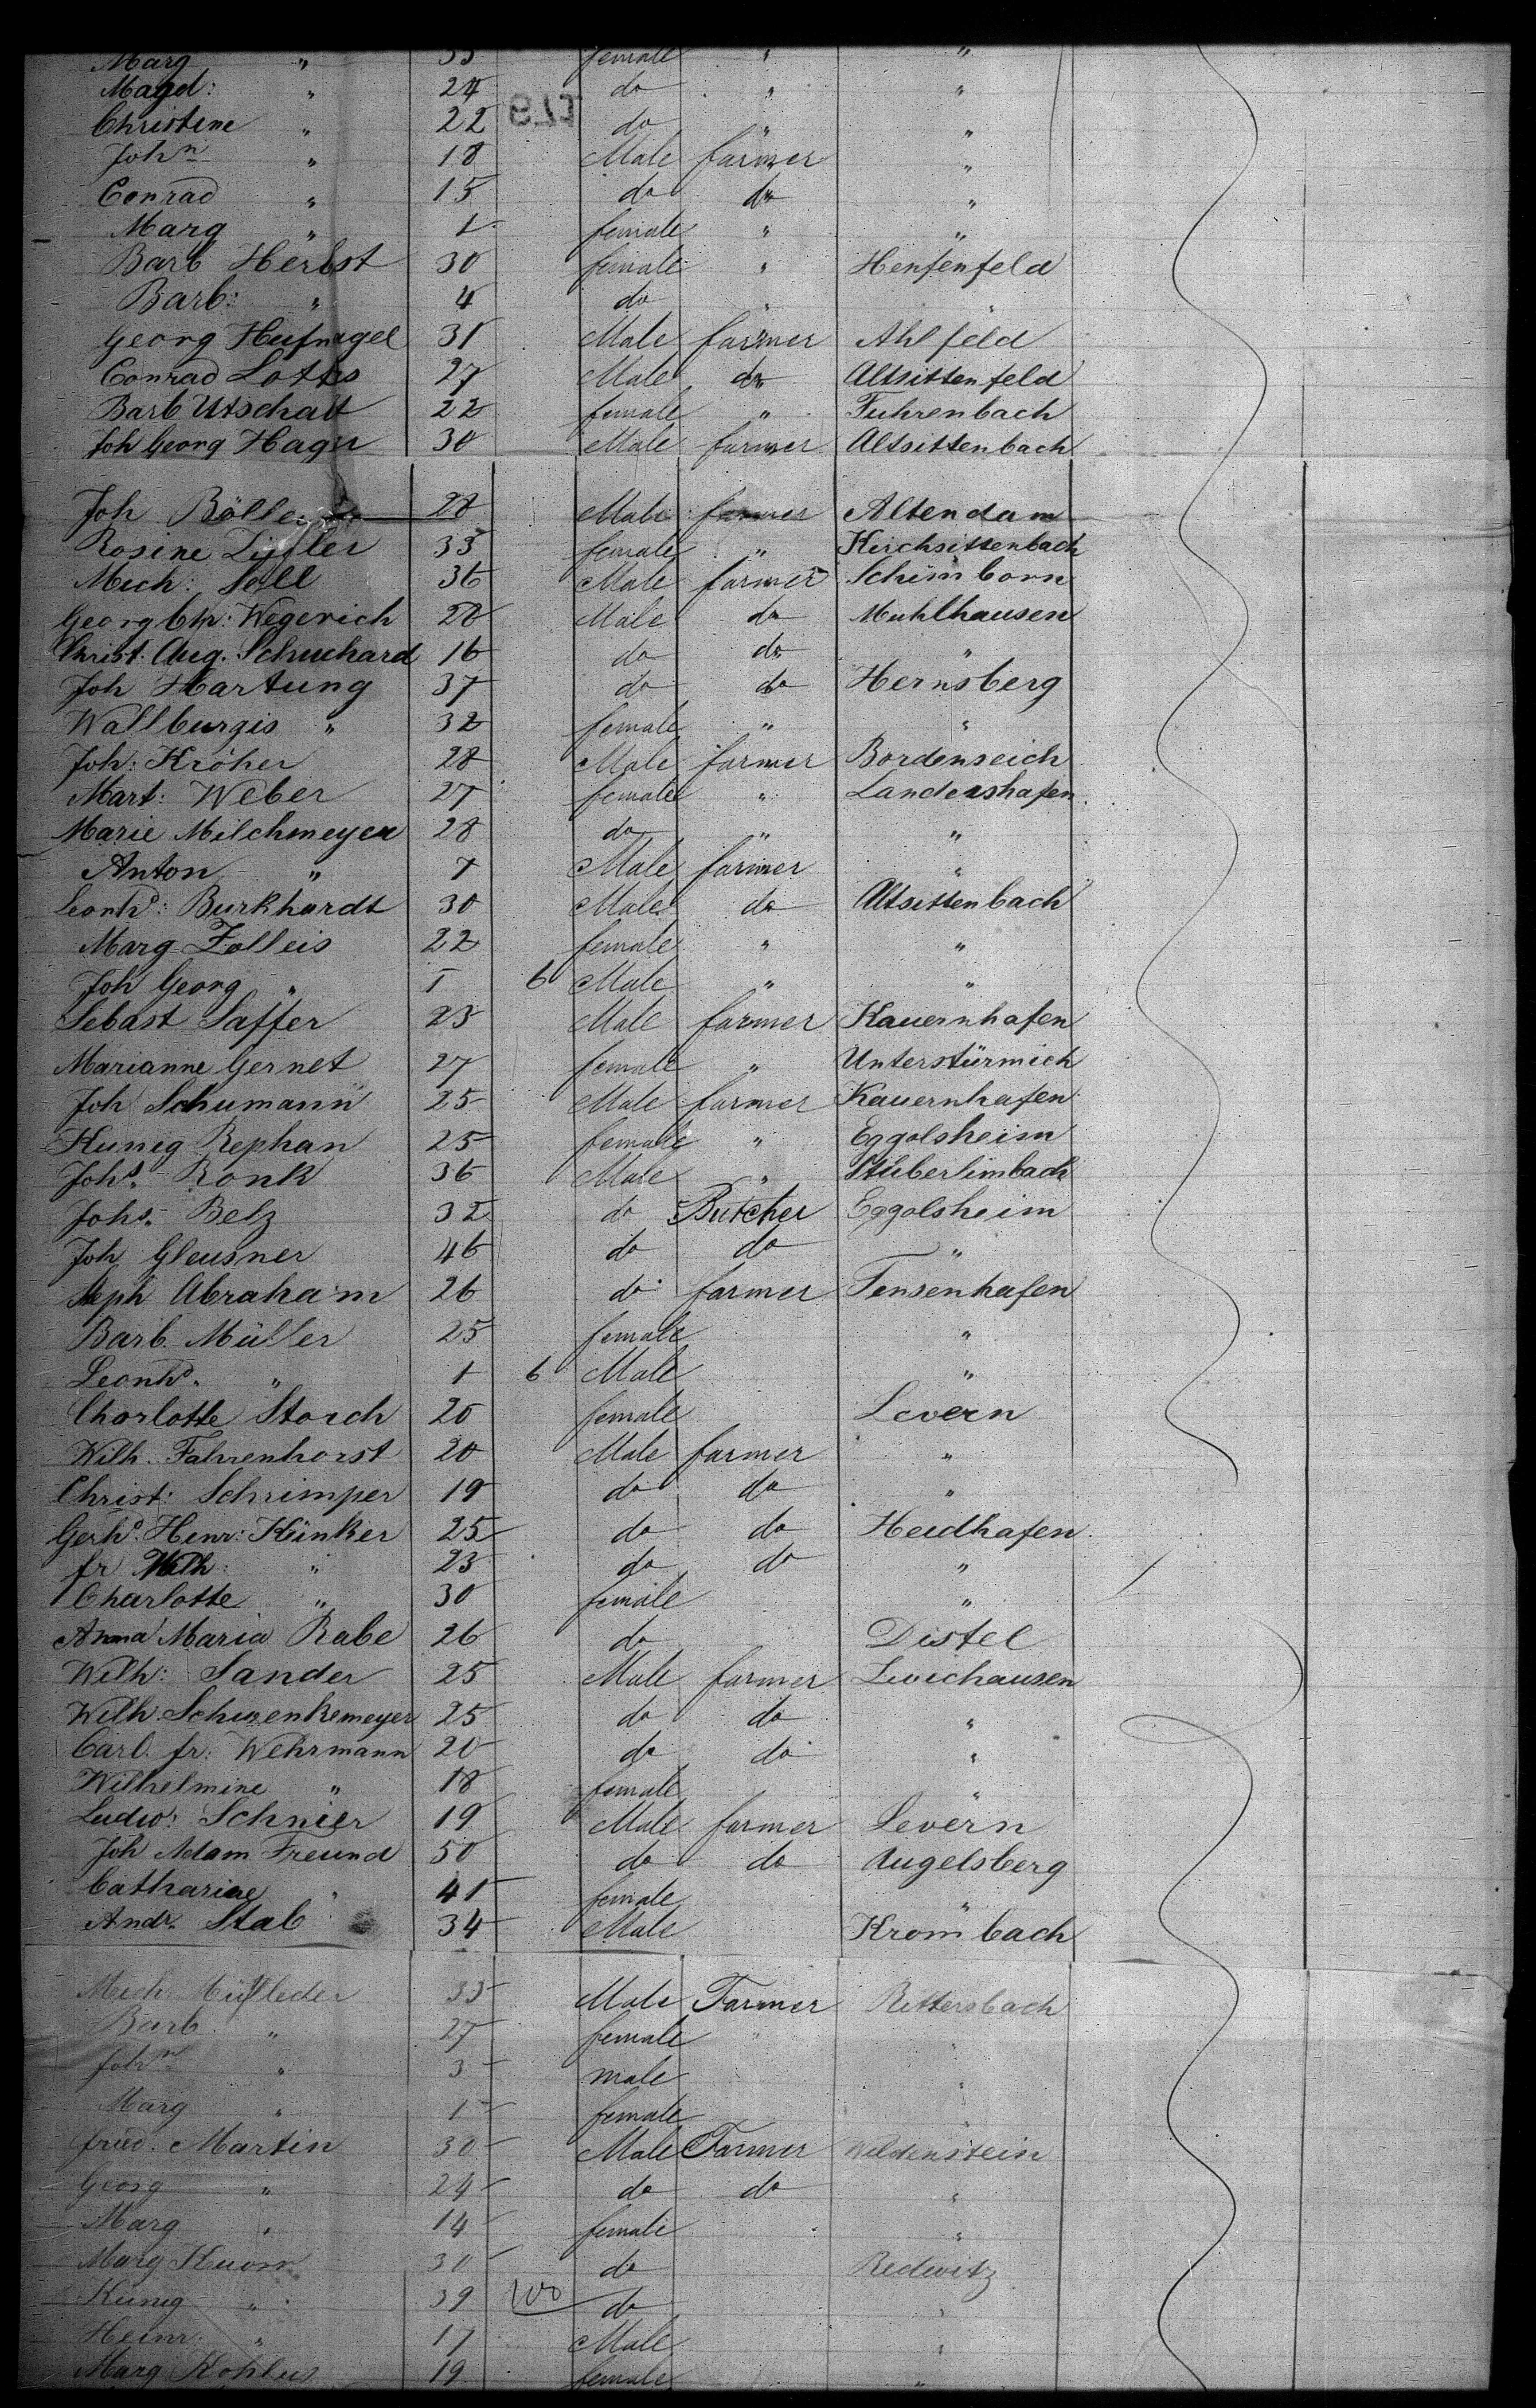 Marg " 33 female " "
Magd: " 24 do " "
Christine " 22 do " "
Joh<sup>n</sup> " 18 Male farmer "
Conrad " 15 do do "
Marg " 1 female " "
Barb Herbst 30 female " Henfenfeld
Barb: " 4 do " "
Georg Hufnagel 31 Male farmer Ahlfeld
Conrad Lotter 27 Male do Altsittenfeld
Barb Utschalt 22 female " Fuhrenbach
Joh Georg Hagn 30 Male farmer Altsittenbach
Joh Bölle 28 Male farmer Altendam
Rosine 33 female " Kirchsittenbach
Mich: Sell 36 Male farmer Schimborn
Georg Chr: Wegerich 28 Male do Muhlhausen
Christ. Aug. Schuchard 16 do do "
Joh Hartung 37 do do Hernsberg
Wallburgis " 32 female " "
Joh: Kröher 28 Male farmer Bordenseich
Mart: Weber 27 female " Landershafen
Marie Milchmeyer 28 do " "
Anton " 7 Male farmer "
Leonh<sup>d</sup>: Burkhardt 30 Male do Altsittenbach
Marg Zolleis 22 female " "
Joh Georg " 1 6 Male " "
Sebast Saffer 23 Male farmer Kauernhofen
Marianne Gernet 27 female " Unterstürmich
Joh Schumann 25 Male farmer Kauernhafen
Kunig Rephan 25 female " Eggolsheim
Joh<sup>s</sup>. Ronk 36 Male " Stüberlimbach
Johs. Belz 32 do Butcher Eggolsheim
Joh Gleusner 46 do do "
Steph Abraham 26 do farmer Tensenhafen
Barb. Müller 25 female "
Leonh<sup>d</sup>. " 1 6 Male "
Charlotte Storch 20 female Levern
Wilh. Fahrenhorst 20 Male farmer "
Christ: Schrimper 19 do do "
Gerh<sup>d</sup>: Henr: Künker 25 do do Heidhafen
fr Wilh: " 23 do do "
Charlotte " 30 female "
Anna Maria Rabe 26 do Distel
Wilh: Sander 25 Male farmer Zwichausen
Wilh. Schwenkemeyer 25 do do "
Carl. fr: Wehrmann 20 do do "
Wilhelmine " 18 female "
Ludw: Schnier 19 Male farmer Levern
Joh Adam Freund 50 do do Augelsberg
Catharine " 41 female "
Andr. Stab 34 Male Krombach
Mich 33 Male Farmer Rittersbach
Barb. " 27 female " "
Joh<sup>n</sup> " 3 male "
Marg " 1 female "
fried. Martin 30 Male Farmer Wildenstein
Georg " 24 do do "
Marg " 14 female "
Marg Knorr 30 do Redwitz
Kunig " 39 100 do "
Heinr. " 17 Male "
Marg Kohlus 19 female "